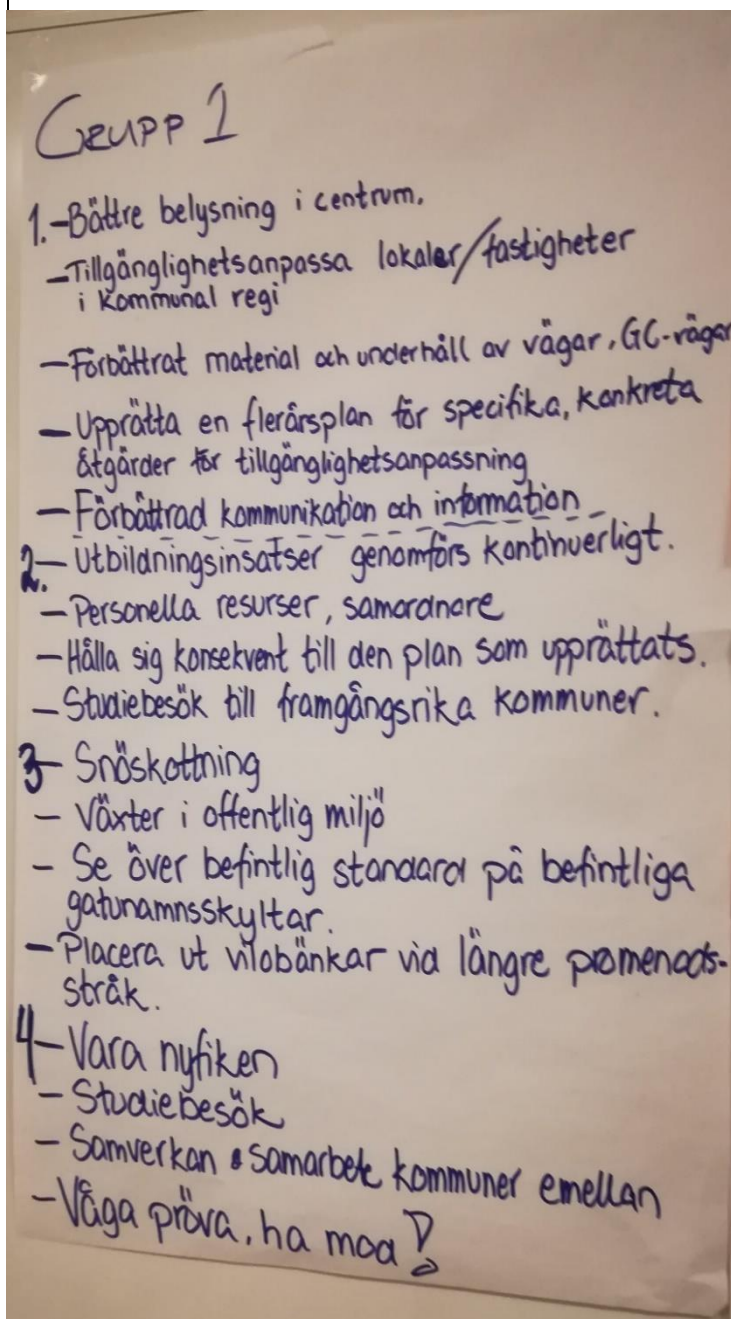 Grupp 1
1.-Bättre belysning i centrum.
-Tillgänglighetsanpassa lokaler/fastigheter
i kommunal regi
-Förbättrat material och underhåll av vägar, GC-vägar
- Upprätta en flerårsplan för specifika, konkreta
åtgärder för tillgänglighetsanpassning
- Förbättrad kommunikation och information
2.- Utbildningsinsatser genomförs kontinuerligt.
- Personella resurser, samordnare
- Hålla sig konsekvent till den plan som upprättats.
- Studiebesök till framgångsrika kommuner.
3- Snöskottning
- Växter i offentlig miljö
- Se över befintlig standard på befintliga
gatunamnsskyltar.
- Placera ut vilobänkar vid längre promenads-
stråk.
4- Vara nyfiken
- Studiebesök
- Samverkan & samarbete kommuner emellan
- Våga pröva, ha mod!